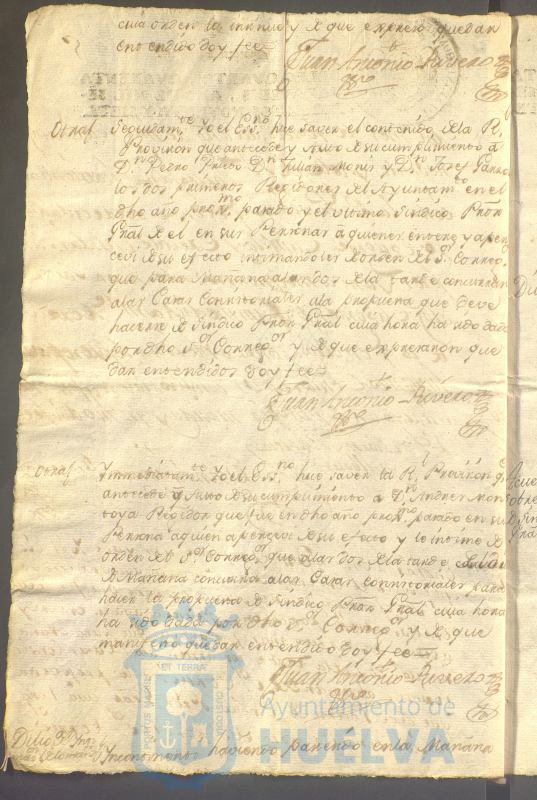 cuia orden la intimè y de que expresò quedan
entendido doy fee=
Juan Antonio Rivero
Otra/ Seguidamte. Yo el Essno. hice saver el contenido de la Rl.
Provision que antecede y Auto de su cumplimiento à
Dn. Pedro Prieto Dn. Julián y Dn. Josef
los dos primeros Regidores del Ayuntamto. en el
dho año proxmo. pasado y el ultimo Sindico Pror.
Gral de el en sus Personas à quienes entere y aper
cevi de su efecto intimandoles de orden del Sr. Correor.
que para Mañana alas dos de la tarde concurran
alas Casas Consistoriales ala propuesta que deve
hacerse de Sindico Pror Gral cuia hora ha sido dada
por dho Sor. Correor. y de que expresaron que
dan entendidos doy fee=
Juan Antonio Rivero
Otra/ Ymmediatamte. Yo el Essno. hice saver la Rl. Provision q.
antecede y Auto de su cumplimiento à Dn. Andres Mon
toya Regidor que fue en dho año proxmo. pasado en su
Persona aquien apercevi de su efecto y le intime de
orden del Sor. Correor. que alas dos de la tarde
de Mañana concurra alas Casas Consistoriales para
hacer la propuesta de Sindico Pror Gral cuia hora
ha sido dada por dho Sor. Correor. y de que
manifestò quedar entendido doy fee=
Juan Antonio Rivero
Incontinenti haviendo parecido en la Mañana
PORTUS MARIS ET TERRAE CUSTODIA
Ayuntamiento de
HUELVA